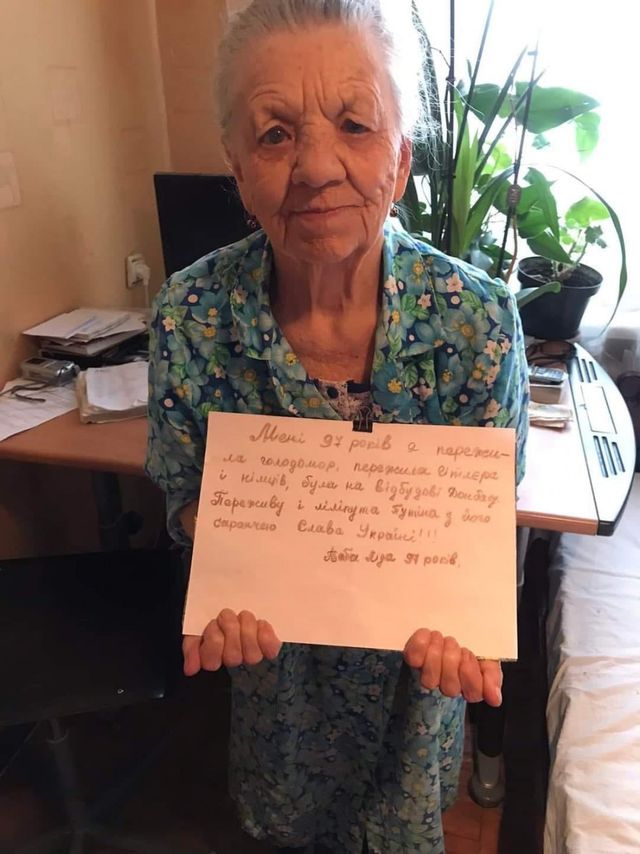 Мені 97 років я пережи-
ла голодомор, пережила Гітлера
і німців, була на відбудові Донбасу
Переживу і ліліпута Путіна з його
саранчею Слава Україні!!!
Баба Ада 97 років.